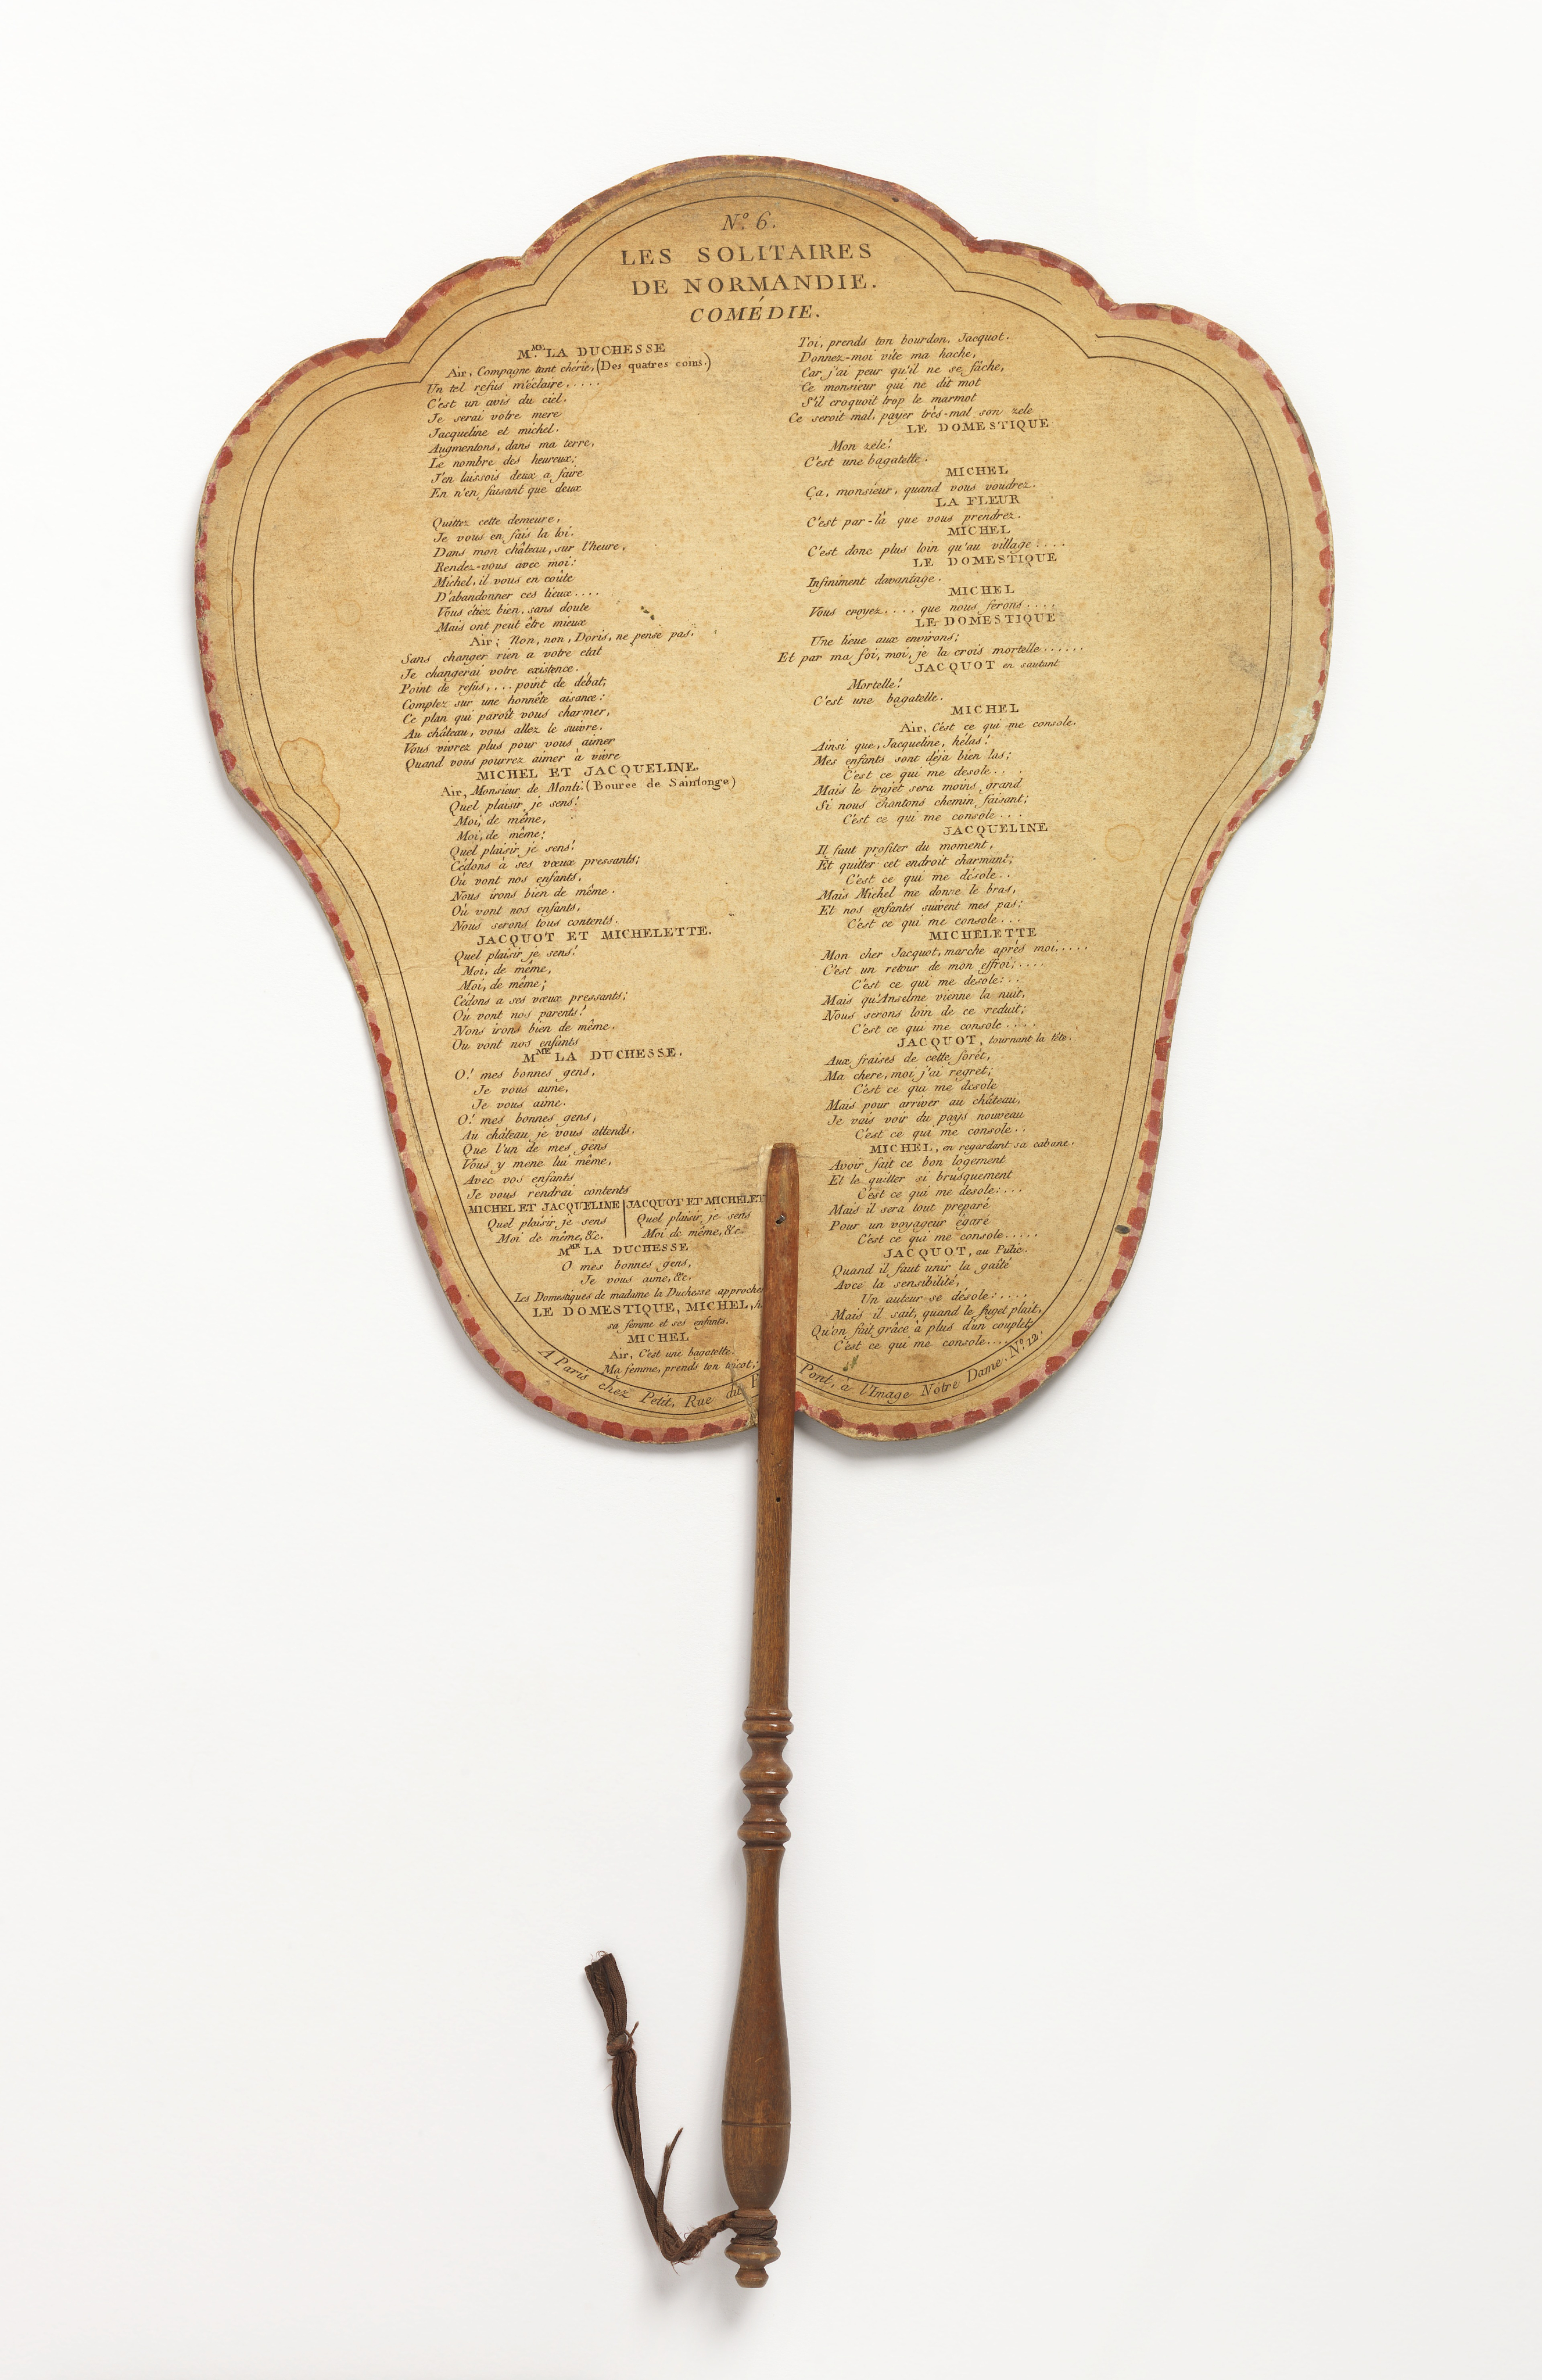 N.º 6.
LES SOLITAIRES
DE NORMANDIE.
COMÉDIE.
M.ME LA DUCHESSE
Air, Compagne tant chérie, (Des quatres coins.)
Un tel refus m'éclaire.....
C'est un avis du ciel.
Je serai votre mere
Jacqueline et michel.
Augmentons, dans ma terre,
Le nombre des heureux;
J'en laissois deux a faire
En n'en faisant que deux
Quittez cette demeure,
Je vous en fais la loi.
Dans mon château, sur l'heure,
Rendez-vous avec moi:
Michel, il vous en coûte
D'abandonner ces lieux....
Vous étiez bien, sans doute
Mais ont peut être mieux
Air; Non, non, Doris, ne pense pas.
Sans changer rien a votre etat
Je changerai votre existence.
Point de refus,... point de débat;
Comptez sur une honnête aisance:
Ce plan qui paroît vous charmer,
Au château, vous allez le suivre.
Vous vivrez plus pour vous aimer
Quand vous pourrez aimer à vivre
MICHEL ET JACQUELINE.
Air, Monsieur de Monti: (Bourée de Saintonge)
Quel plaisir je sens!
Moi, de même,
Moi, de même;
Quel plaisir je sens!
Cédons à ses vœux pressants;
Où vont nos enfants,
Nous irons bien de même.
Où vont nos enfants,
Nous serons tous contents.
JACQUOT ET MICHELETTE.
Quel plaisir je sens!
Moi, de même,
Moi, de même;
Cédons a ses vœux pressants;
Où vont nos parents!
Nons irons bien de même.
Ou vont nos enfants
M.ME LA DUCHESSE.
O! mes bonnes gens,
Je vous aime,
Je vous aime.
O! mes bonnes gens,
Au château je vous attends.
Que l'un de mes gens
Vous y mene lui même,
Avec vos enfants
Je vous rendrai contents
MICHEL ET JACQUELINE | JACQUOT ET
Quel plaisir je sens | Quel plaisir je sens
Moi de même, &c. | Moi de même, &c.
M.ME LA DUCHESSE
O mes bonnes gens,
Je vous aime, &c.
Les Domestiques de madame la Duchesse
LE DOMESTIQUE, MICHEL,
sa femme et ses enfants.
MICHEL
Air, C'est une bagatelle.
Ma femme, prends ton tricot;
Toi, prends ton bourdon, Jacquot.
Donnez-moi vite ma hache,
Car j'ai peur qu'il ne se fâche,
Ce monsieur qui ne dit mot
S'il croquoit trop le marmot
Ce seroit mal, payer très-mal son zele
LE DOMESTIQUE
Mon zele!
C'est une bagatelle.
MICHEL
Ça, monsieur, quand vous voudrez.
LA FLEUR
C'est par-là que vous prendrez.
MICHEL
C'est donc plus loin qu'au village....
LE DOMESTIQUE
Infiniment davantage.
MICHEL
Vous croyez.... que nous ferons....
LE DOMESTIQUE
Une lieue aux environs;
Et par ma foi, moi, je la crois mortelle......
JACQUOT en sautant
Mortelle!
C'est une bagatelle.
MICHEL
Air, C'est ce qui me console.
Ainsi que, Jacqueline, hélas!
Mes enfants sont déja bien las;
C'est ce qui me desole....
Mais le trajet sera moins grand
Si nous chantons chemin faisant;
C'est ce qui me console...
JACQUELINE
Il faut profiter du moment,
Et quitter cet endroit charmant;
C'est ce qui me désole..
Mais Michel me donne le bras,
Et nos enfants suivent mes pas;
C'est ce qui me console...
MICHELETTE
Mon cher Jacquot, marche après moi.....
C'est un retour de mon effroi;....
C'est ce qui me desole:..
Mais qu'Anselme vienne la nuit,
Nous serons loin de ce reduit;
C'est ce qui me console....
JACQUOT, tournant la tête.
Aux fraises de cette forêt,
Ma chere, moi j'ai regret;
C'est ce qui me desole
Mais pour arriver au château,
Je vais voir du pays nouveau
C'est ce qui me console..
MICHEL, en regardant sa cabane.
Avoir fait ce bon logement
Et le quitter si brusquement
C'est ce qui me desole:...
Mais il sera tout préparé
Pour un voyageur égaré
C'est ce qui me console.....
JACQUOT, au Pulic.
Quand il faut unir la gaîté
Avec la sensibilité,
Un auteur se désole:....
Mais il sait, quand le sujet plait,
Qu'on fait grâce à plus d'un couplet;
C'est ce qui me console....
A Paris chez Petit, Rue du Pont, à l'Image Notre Dame. N.º 12.